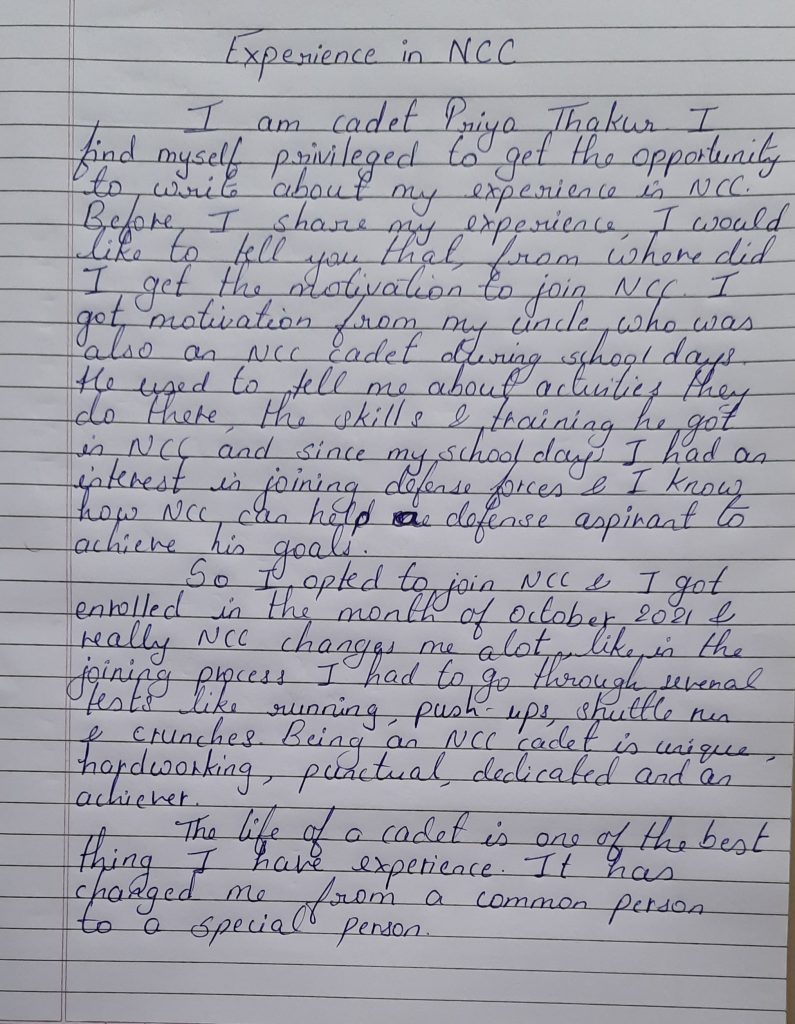 Experience in NCC
I am cadet Priya Thakur I
find myself privileged to get the opportunity
to write about my experience in NCC.
Before I share my experience, I would
like to tell you that, from where did
I get the motivation to join NCC. I
got motivation from my uncle, who was
also an NCC cadet during school days.
He used to tell me about activities they
do there, the skills & training he got
in NCC and since my school days I had an
interest in joining defense forces & I know
how NCC can help a defense aspirant to
achieve his goals.
So I opted to join NCC & I got
enrolled in the month of October 2021 &
really NCC changes me alot, like in the
joining process I had to go through several
tests like running, push-ups, shuttle run
& crunches. Being an NCC cadet is unique,
hardworking, punctual, dedicated and an
achiever.
The life of a cadet is one of the best
thing I have experience. It has
changed me from a common person
to a special person.